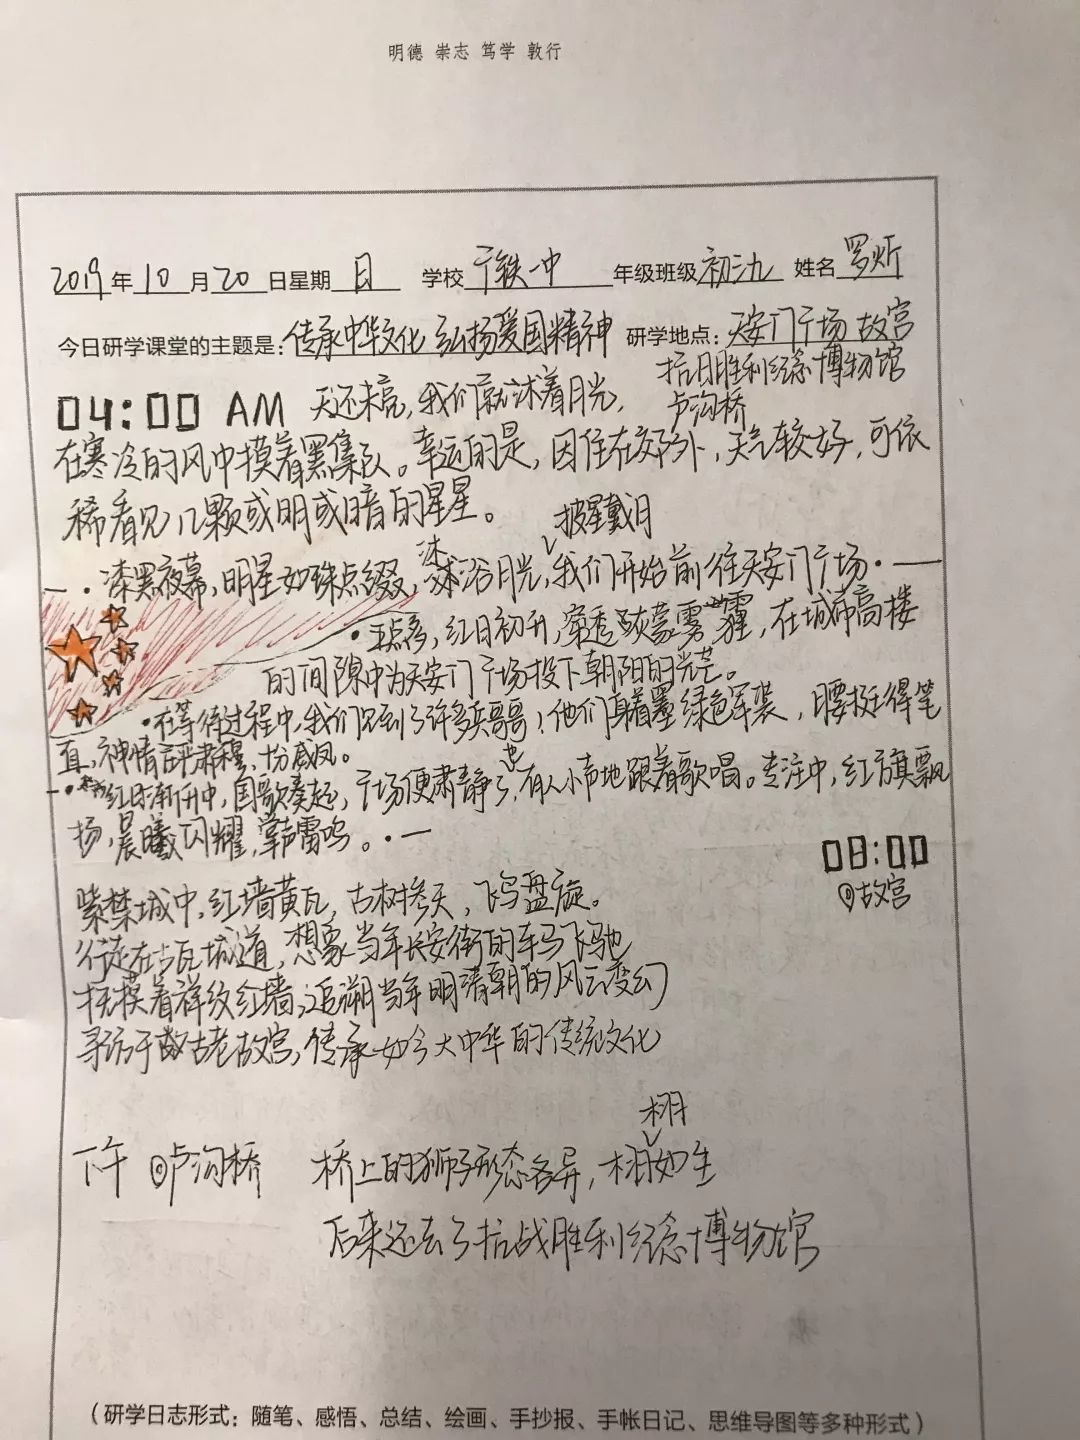 明德 崇志 笃学 敦行
2019年10月20日星期日 学校广铁一中 年级班级初三九 姓名罗炘
今日研学课堂的主题是:传承中华文化 弘扬爱国精神 研学地点:天安门广场 故宫
抗日胜利纪念博物馆
卢沟桥
04:00 AM 天还未亮,我们就沐着月光,
在寒冷的风中摸着黑集队。幸运的是,因住在郊外,天气较好,可依
稀看见几颗或明或暗的星星。
披星戴月
—·漆黑夜幕,明星如珠点缀,沐浴月光,我们开始前往天安门广场·—
·五点多,红日初升,穿透灰蒙雾霾,在城市高楼
的间隙中为天安门广场投下朝阳的光芒。
·在等待过程中,我们见到了许多兵哥哥!他们身着墨绿色军装,腰挺得笔
直,神情严肃穆,十分威风。
—·红日渐升中,国歌奏起,广场便肃静了,也有人小声地跟着歌唱。专注中,红旗飘
扬,晨曦闪耀,掌声雷鸣。·—
08:00
@故宫
紫禁城中,红墙黄瓦,古树参天,飞鸟盘旋。
行走在古瓦城道,想象当年长安街的车马飞驰
抚摸着祥纹红墙,追溯当年明清朝的风云变幻
寻访于古老故宫,传承如今大中华的传统文化
栩
下午 @卢沟桥 桥上的狮子形态各异,栩如生
后来还去了抗战胜利纪念博物馆
(研学日志形式:随笔、感悟、总结、绘画、手抄报、手帐日记、思维导图等多种形式)